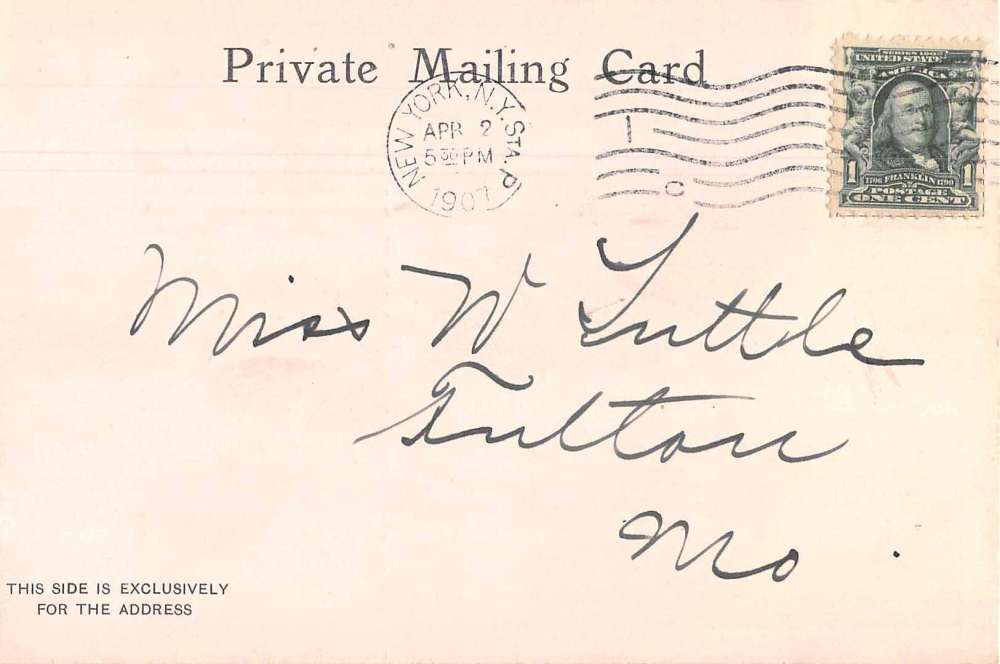 Private Mailing Card
NEW YORK, N.Y. STA. P
APR 2
5 30 PM
1907
1
C
SERIES 1902
UNITED STATES OF
AMERICA
1706 FRANKLIN 1790
1 POSTAGE 1
ONE CENT
Miss W Tuttle
Fulton
Mo.
THIS SIDE IS EXCLUSIVELY
FOR THE ADDRESS